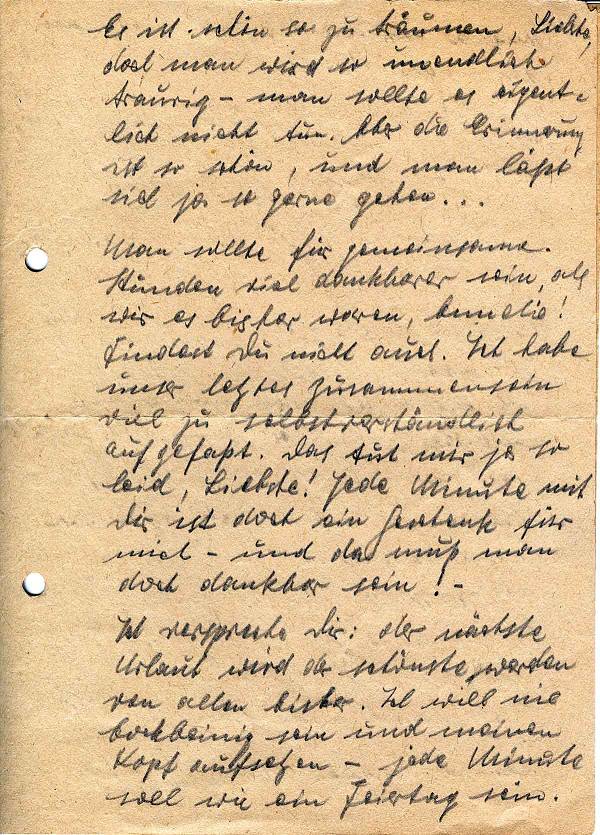 Es ist schön so zu träumen, Liebste,
doch man wird so unendlich
traurig – man sollte es eigent-
lich nicht tun. Aber die Erinnerung
ist so schön, und man läßt
sich ja so gerne gehen...
Man sollte für gemeinsame
Stunden viel dankbarer sein, als
wir es bisher waren,
Findest Du nicht auch. Ich habe
unser letztes Zusammensein
viel zu selbstverständlich
aufgefaßt. Das tut mir ja so
leid, Liebste! Jede Minute mit
Dir ist doch ein Geschenk für
mich – und da muß man
doch dankbar sein! –
Ich verspreche Dir: der nächste
Urlaub wird der schönste werden
von allen bisher. Ich will nie
bockbeinig sein und meinen
Kopf aufsetzen – jede Minute
soll wie ein Feiertag sein.